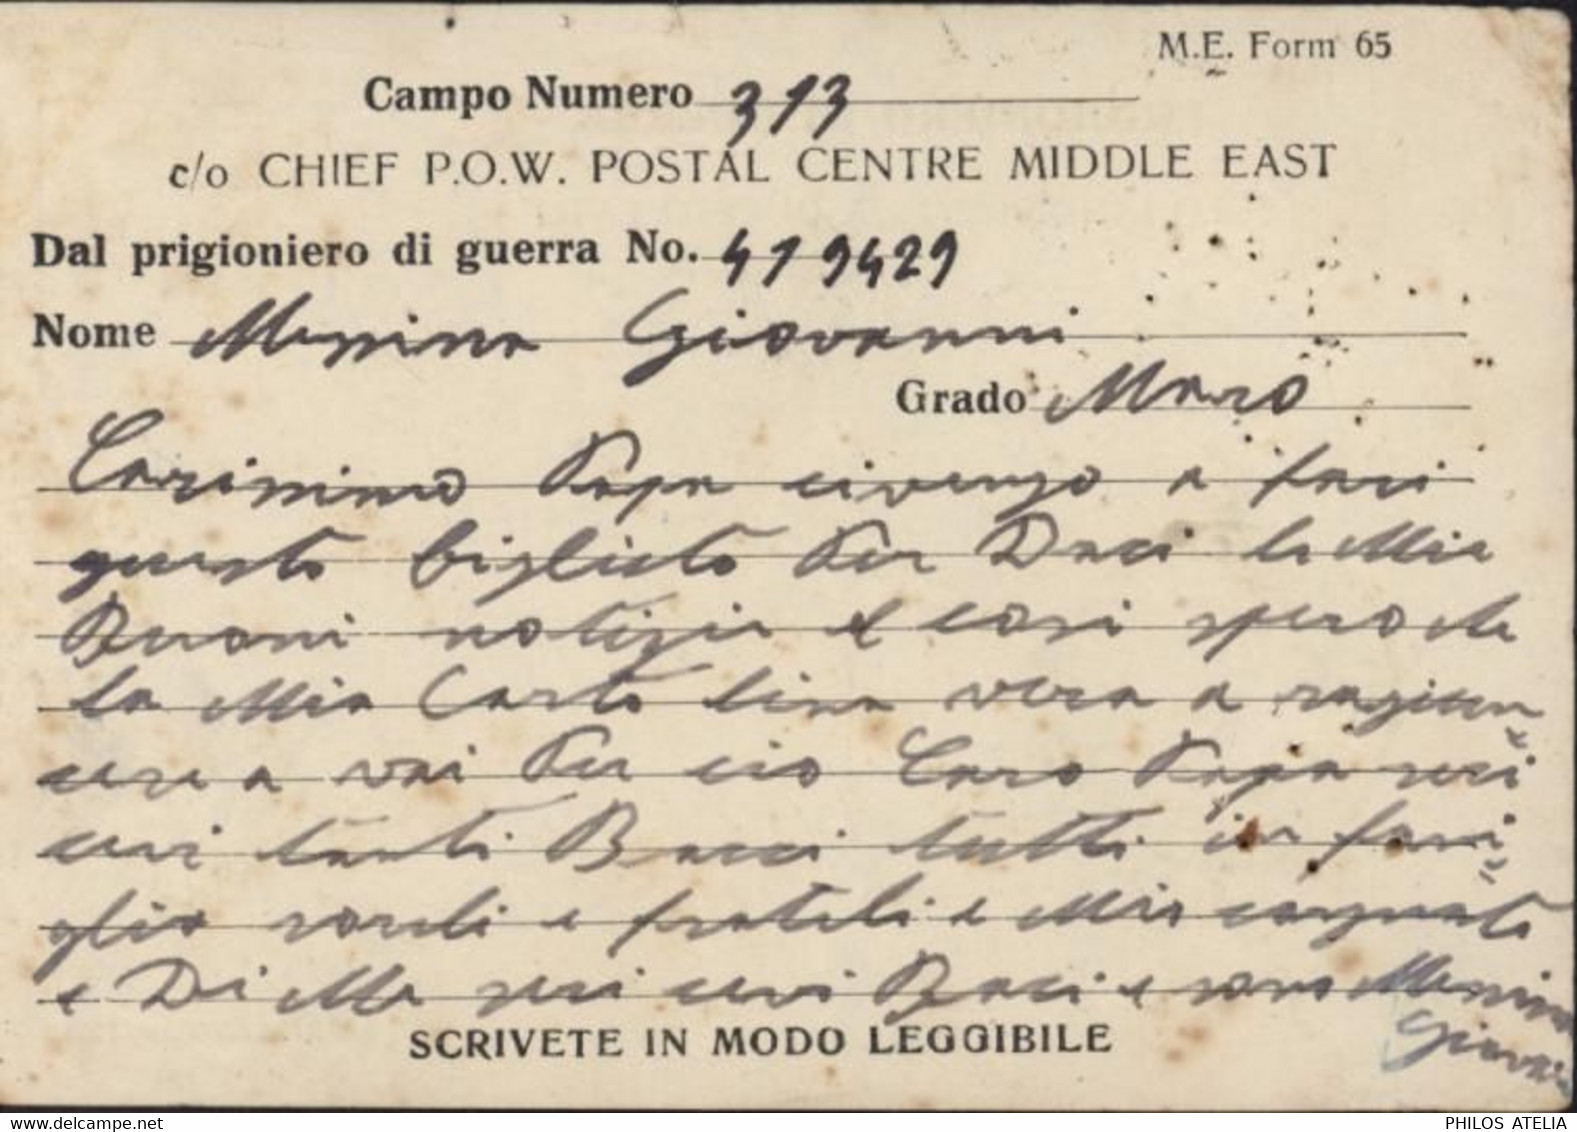 M.E. Form 65
Campo Numero 313
c/o CHIEF P.O.W. POSTAL CENTRE MIDDLE EAST
Dal prigioniero di guerra No. 419429
Nome Messina Giovanni
Grado Maro
Carissimo Papa civengo a farci
questo biglieto Per Daci le Mie
Buoni notizie e cosi spero che
la Mia Cartolina vera a ragiun
cere a voi Per cio Caro Papa reci
cevi tanti Bacci tutti in fami
glia soreli e frateli e Mio cognato
e Di Me reci cevi Baci e sono Messina
Giovanni
SCRIVETE IN MODO LEGGIBILE
PHILOS ATELIA